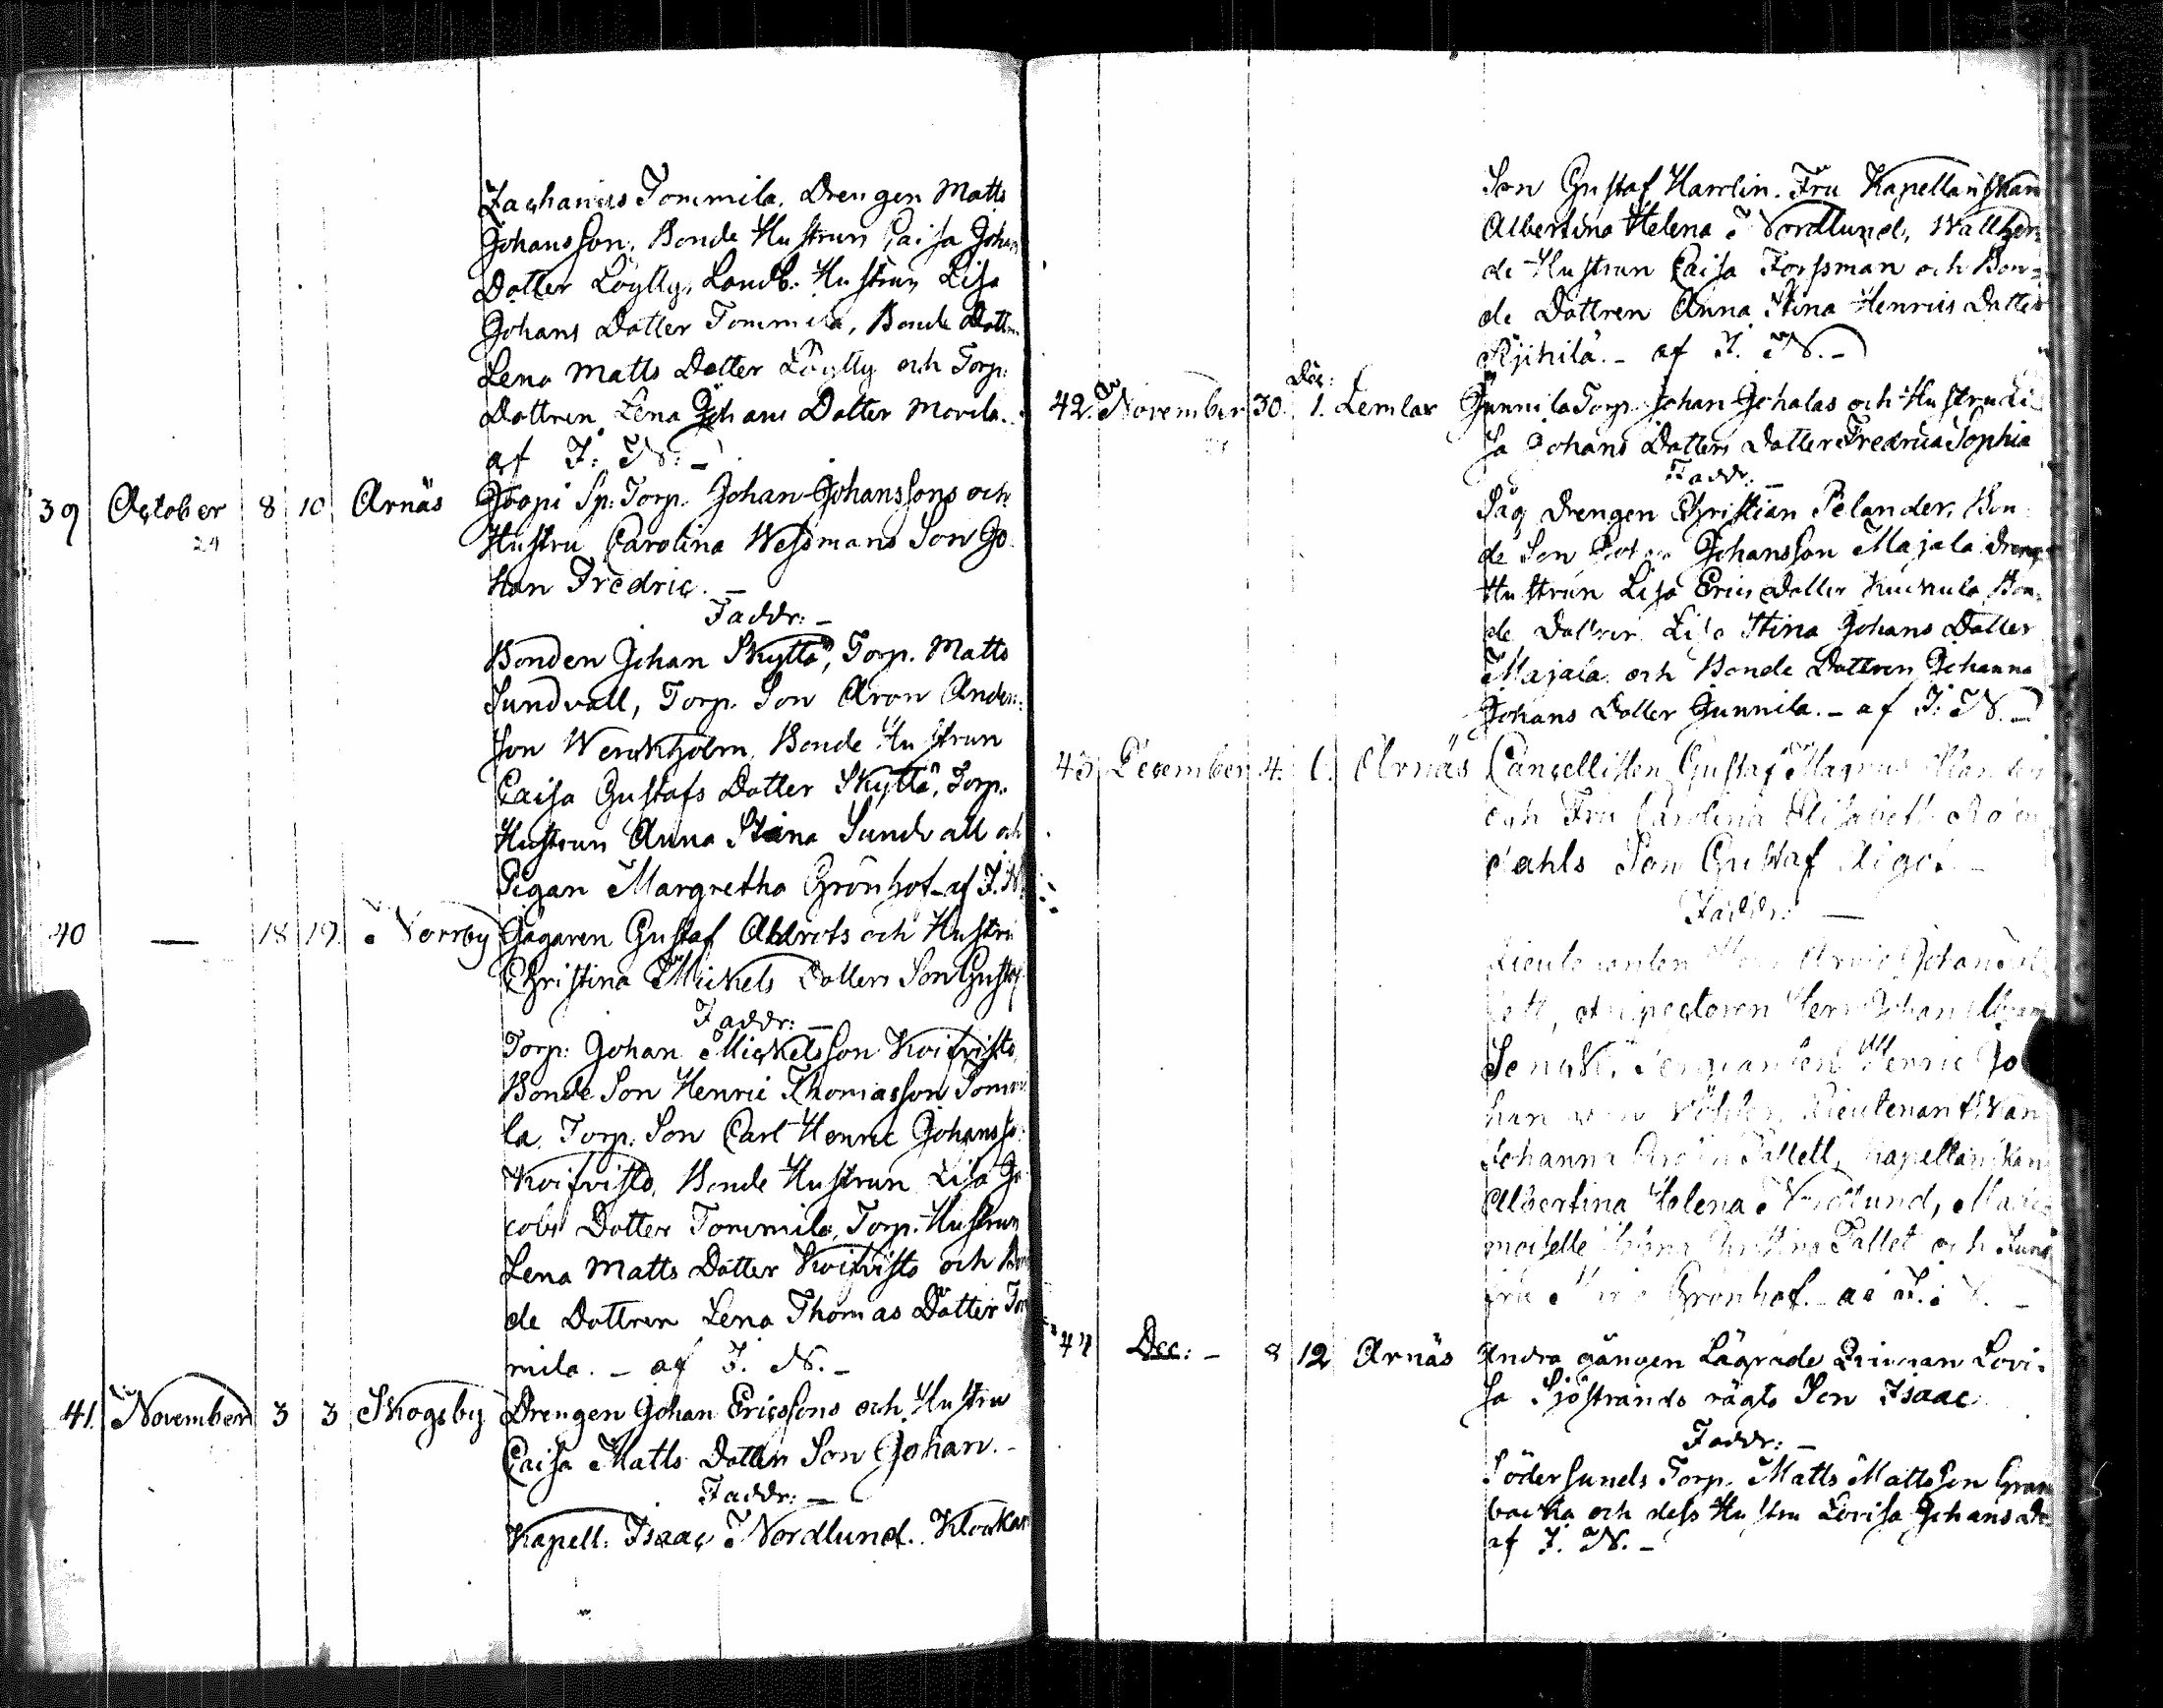 Zacharias Tommila, Drengen Matts
Johansson, Bonde Hustrun Caisa Johans
Dotter Löylly, Landb. Hustrun Lisa
Johans Dotter Tommila, Bonde Dottren
Lena Matts Dotter Löylly och Torp:
Dottren Lena Johans Dotter Morila.
af I: N: –
39 October 8 10 Arnäs Joopi Sp: Torp. Johan Johanssons och
24 Hustru Carolina Wessmans Son Jo
han Fredric. –
Faddr: –
Bonden Johan Skyttä, Torp. Matts
Sundvall, Torp. Son Aron Anders:
son Wenkholm, Bonde Hustrun
Caisa Gustafs Dotter Skyttä, Torp.
Hustrun Anna Stina Sundvall och
Pigan Margretha Grönhof – af I. N.
40 — 18 19. Norrby Jägaren Gustaf Ahlrots och Hustru
Christina Mickels Dotters Son Gustaf
Faddr: –
Torp: Johan Mickelsson Koifvisto,
Bonde Son Henric Thomasson Tommi
la, Torp. Son Carl Henric Johansso:
Koifvisto, Bonde Hustrun Lisa Ja
cobs Dotter Tommila, Torp. Hustrun
Lena Matts Dotter Koifvisto och Bon
de Dottren Lena Thomas Dotter Tom
mila. – af I. N. –
41. November 3 3 Skogsby Drengen Johan Ericssons och Hustru
Caisa Matts Dotters Son Johan. –
Faddr: –
Kapell: Isaac Nordlund. Klockar
Son Gustaf Hamlin. Fru Kapellanskan
Albertina Helena Nordlund, Wallher:
de Hustrun Caisa Forssman och Bon=
de Dottren Anna Stina Henrics Dotter
– af I. N. –
Dec:
42. November 30. 1. Lemlax Gunnila Torp. Johan Johalas och Hustru Li
sa Johans Dotters Dotter Fredrica Sophia
Faddr: –
Såg Drengen Christian Pelander, Bon
de Son Johansson Majala, Drengs
Hustrun Lisa Erics Dotter Bon:
de Dottren Lisa Stina Johans Dotter
Majala och Bonde Dottren Johanna
Johans Dotter Gunnila. – af I: N. –
43. December 4. 6. Arnäs Cancellisten Gustaf Magnus
och Fru Carolina Elisabeth Rosen
dahls Son Gustaf
Faddr: —
Lieutenanten Herr Johan
Inspectoren Herr Johan
Henric Jo
han Lieutenantskan
Johanna Tallett, Kapellanskan
Albertina Helena Nordlund, Made
moiselle Christina Tallet och
Grönhof. af I. N. –
44 Dec: – 8 12 Arnäs Andra gången Lägrade Qvinnan Lovi:
sa Sjöstrands oägta Son Isaac
Faddr: –
Södersunds Torp. Matts Mattsson Gran
backa och dess Hustru Lovisa Johans Do
af I. N. –